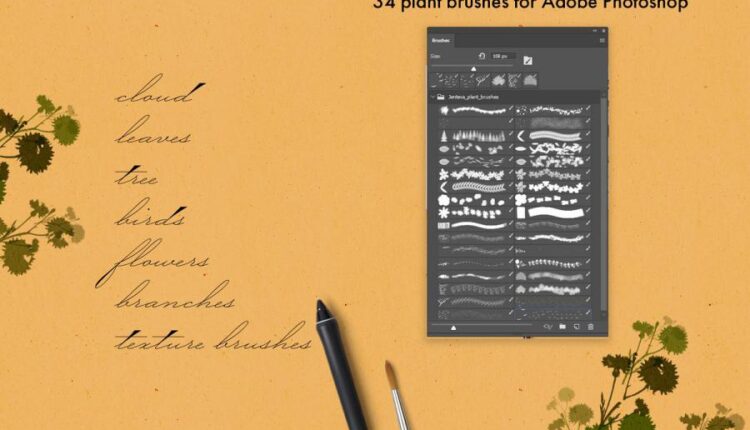 34 plant brushes for Adobe Photoshop
cloud
leaves
tree
birds
flowers
branches
texture brushes
Brushes
Size: